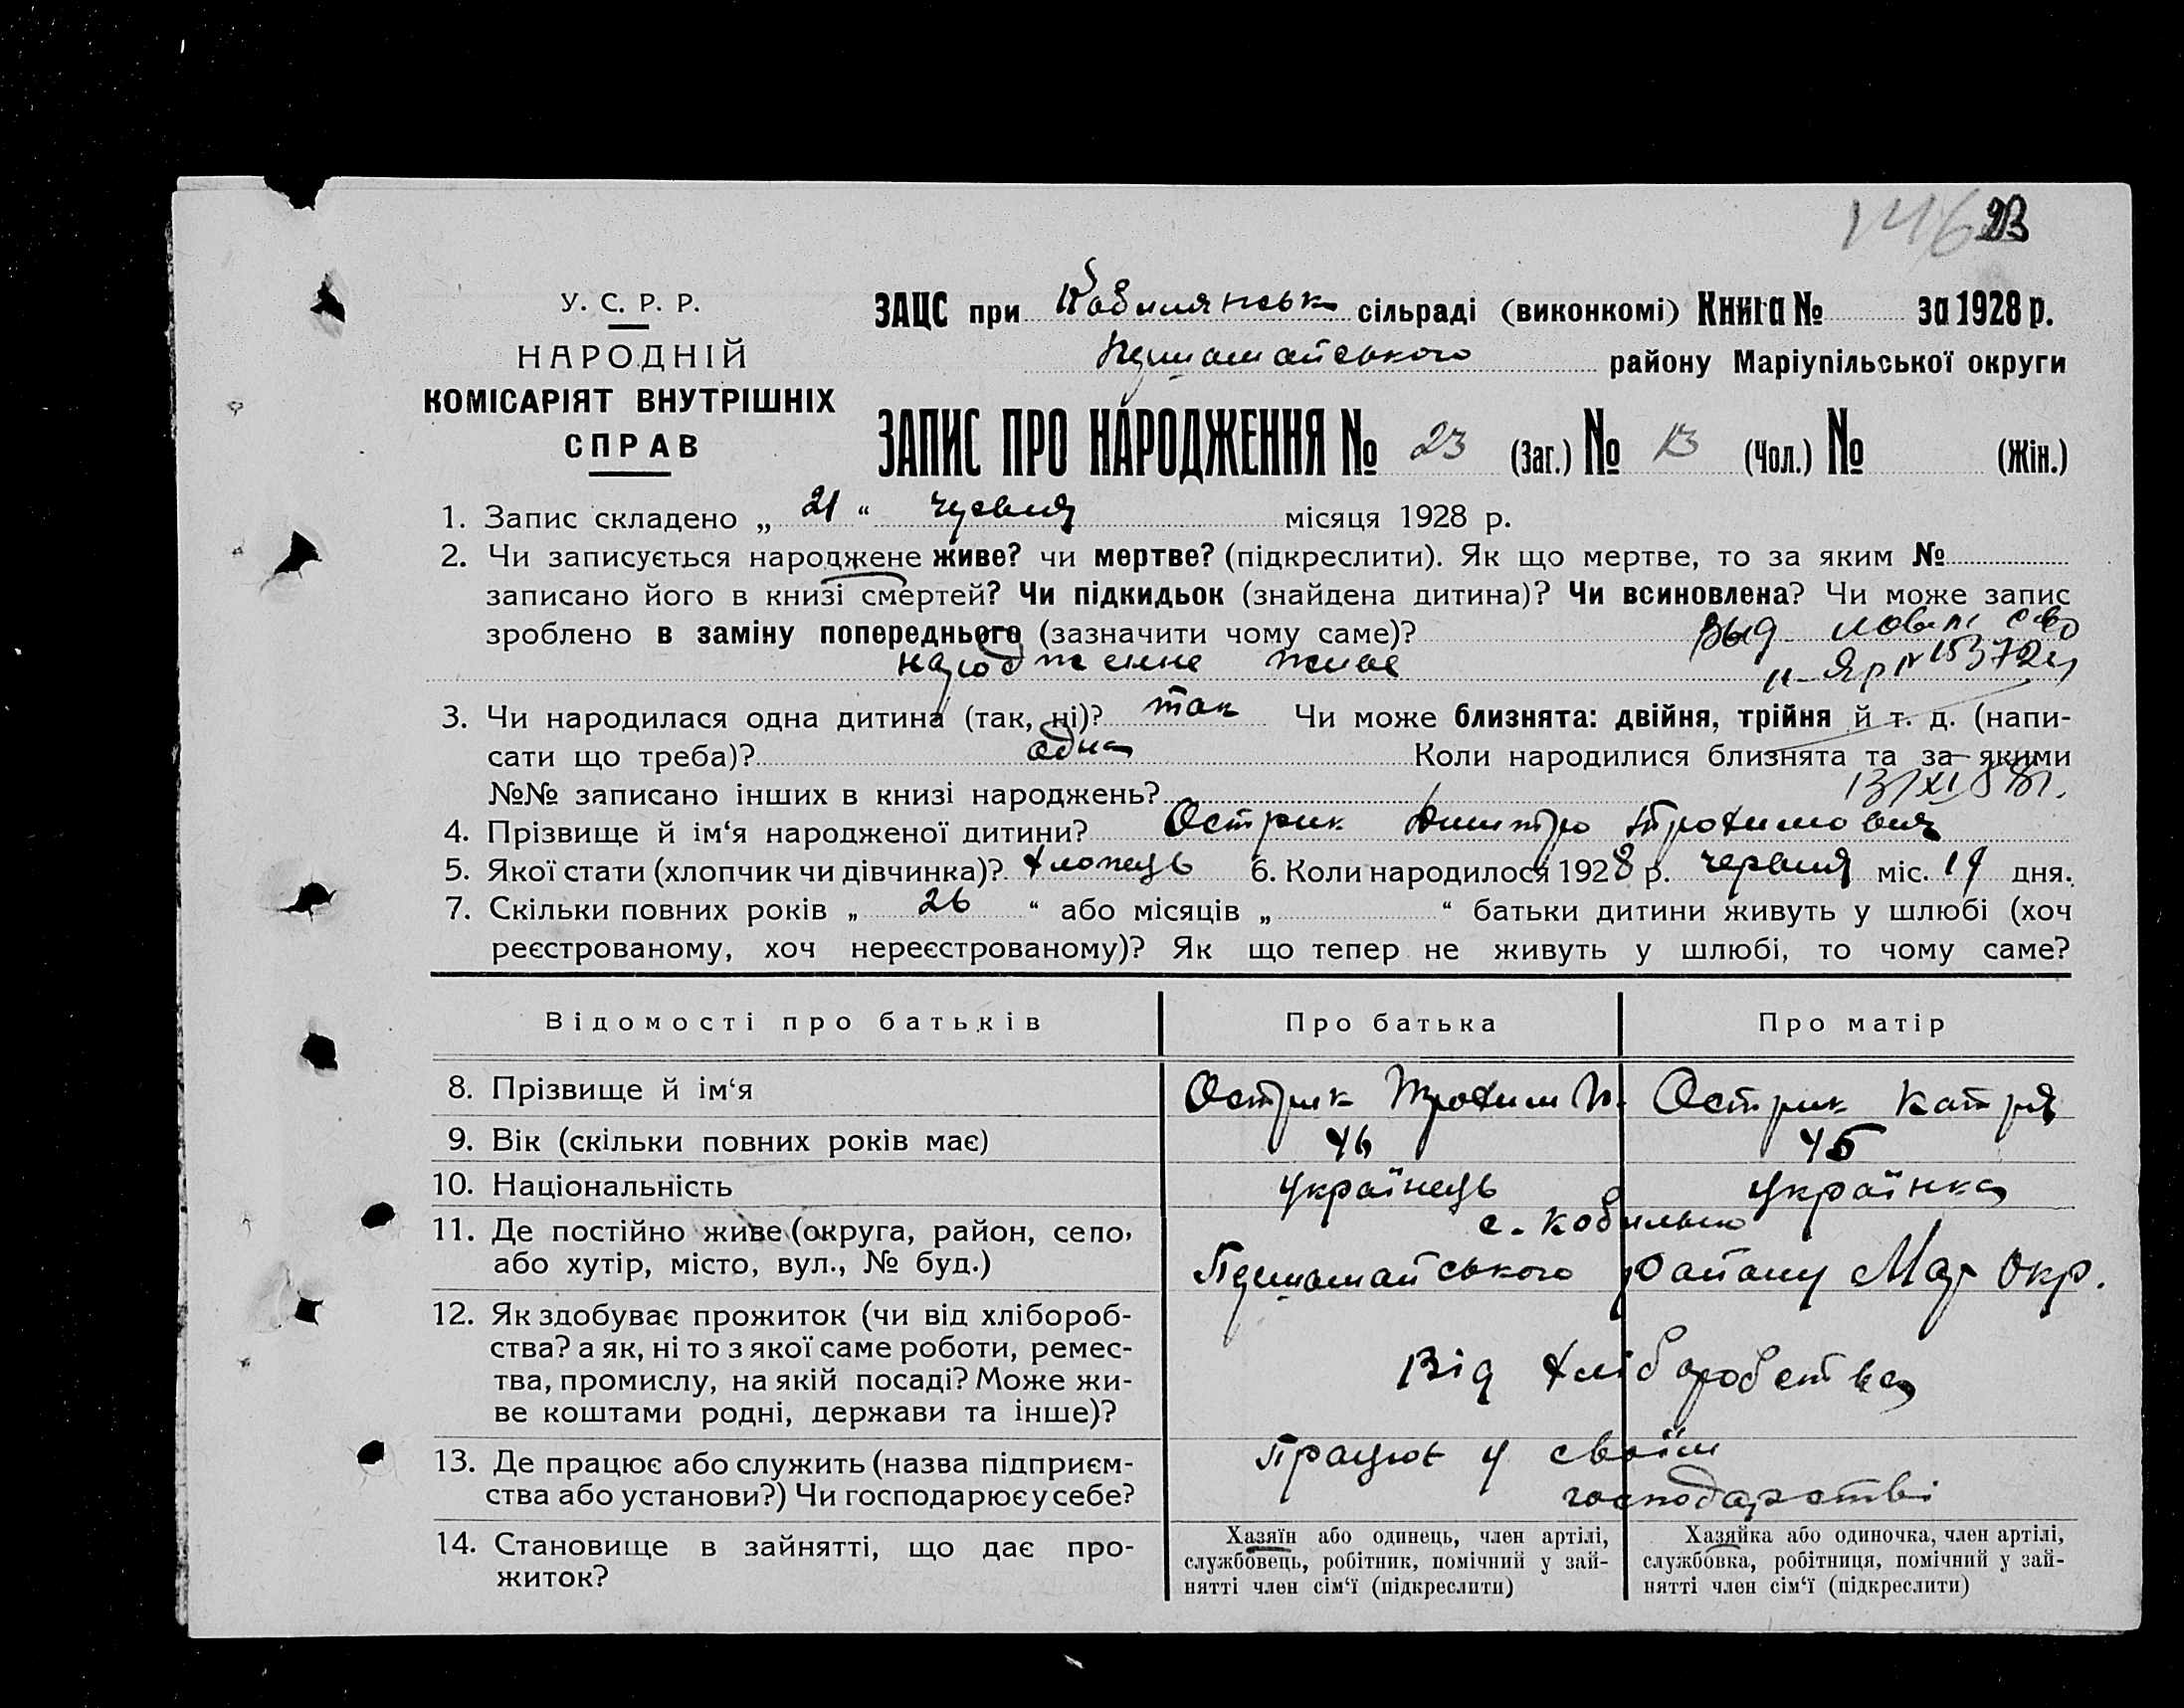 146 23
У. С. Р. Р.
НАРОДНІЙ
КОМІСАРІЯТ ВНУТРІШНІХ
СПРАВ
ЗАЦС при Кобилянськ сільраді (виконкомі) Книга № за 1928 р.
Першомайського району Маріупільської округи
ЗАПИС ПРО НАРОДЖЕННЯ № 23 (Заг.) № 13 (Чол.) № (Жін.)
1. Запис складено „ 21 “ червня місяця 1928 р.
2. Чи записується народжене живе? чи мертве? (підкреслити). Як що мертве, то за яким №
записано його в книзі смертей? Чи підкидьок (знайдена дитина)? Чи всиновлена? Чи може запис
зроблено в заміну попереднього (зазначити чому саме)? Выд
народженне живе
3. Чи народилася одна дитина (так, ні)? так Чи може близнята: двійня, трійня й т. д. (напи-
сати що треба)? одна Коли народилися близнята та за якими
№№ записано інших в книзі народжень?
4. Прізвище й ім‘я народженої дитини? Острик Дмитро Трохимович
5. Якої стати (хлопчик чи дівчинка)? хлопець 6. Коли народилося 1928 р. червня міс. 19 дня.
7. Скільки повних років „ 26 “ або місяців „ “ батьки дитини живуть у шлюбі (хоч
реєстрованому, хоч нереєстрованому)? Як що тепер не живуть у шлюбі, то чому саме?
Відомості про батьків Про батька Про матір
8. Прізвище й ім‘я Острик Трохим Острик Катря
9. Вік (скільки повних років має) 46 45
10. Національність українець українка
11. Де постійно живе (округа, район, село, с. Кобильно
або хутір, місто, вул., № буд.) Першомайського району Мар окр.
12. Як здобуває прожиток (чи від хлібороб-
ства? а як, ні то з якої саме роботи, ремес-
тва, промислу, на якій посаді? Може жи- Від хліборобства
ве коштами родні, держави та інше)?
13. Де працює або служить (назва підприєм- працює у своїм
ства або установи?) Чи господарює у себе? господарстві
14. Становище в зайнятті, що дає про-
житок?
Хазяїн або одинець, член артілі,
службовець, робітник, помічний у зай-
нятті член сім‘ї (підкреслити)
Хазяйка або одиночка, член артілі,
службовка, робітниця, помічний у зай-
нятті член сім‘ї (підкреслити)